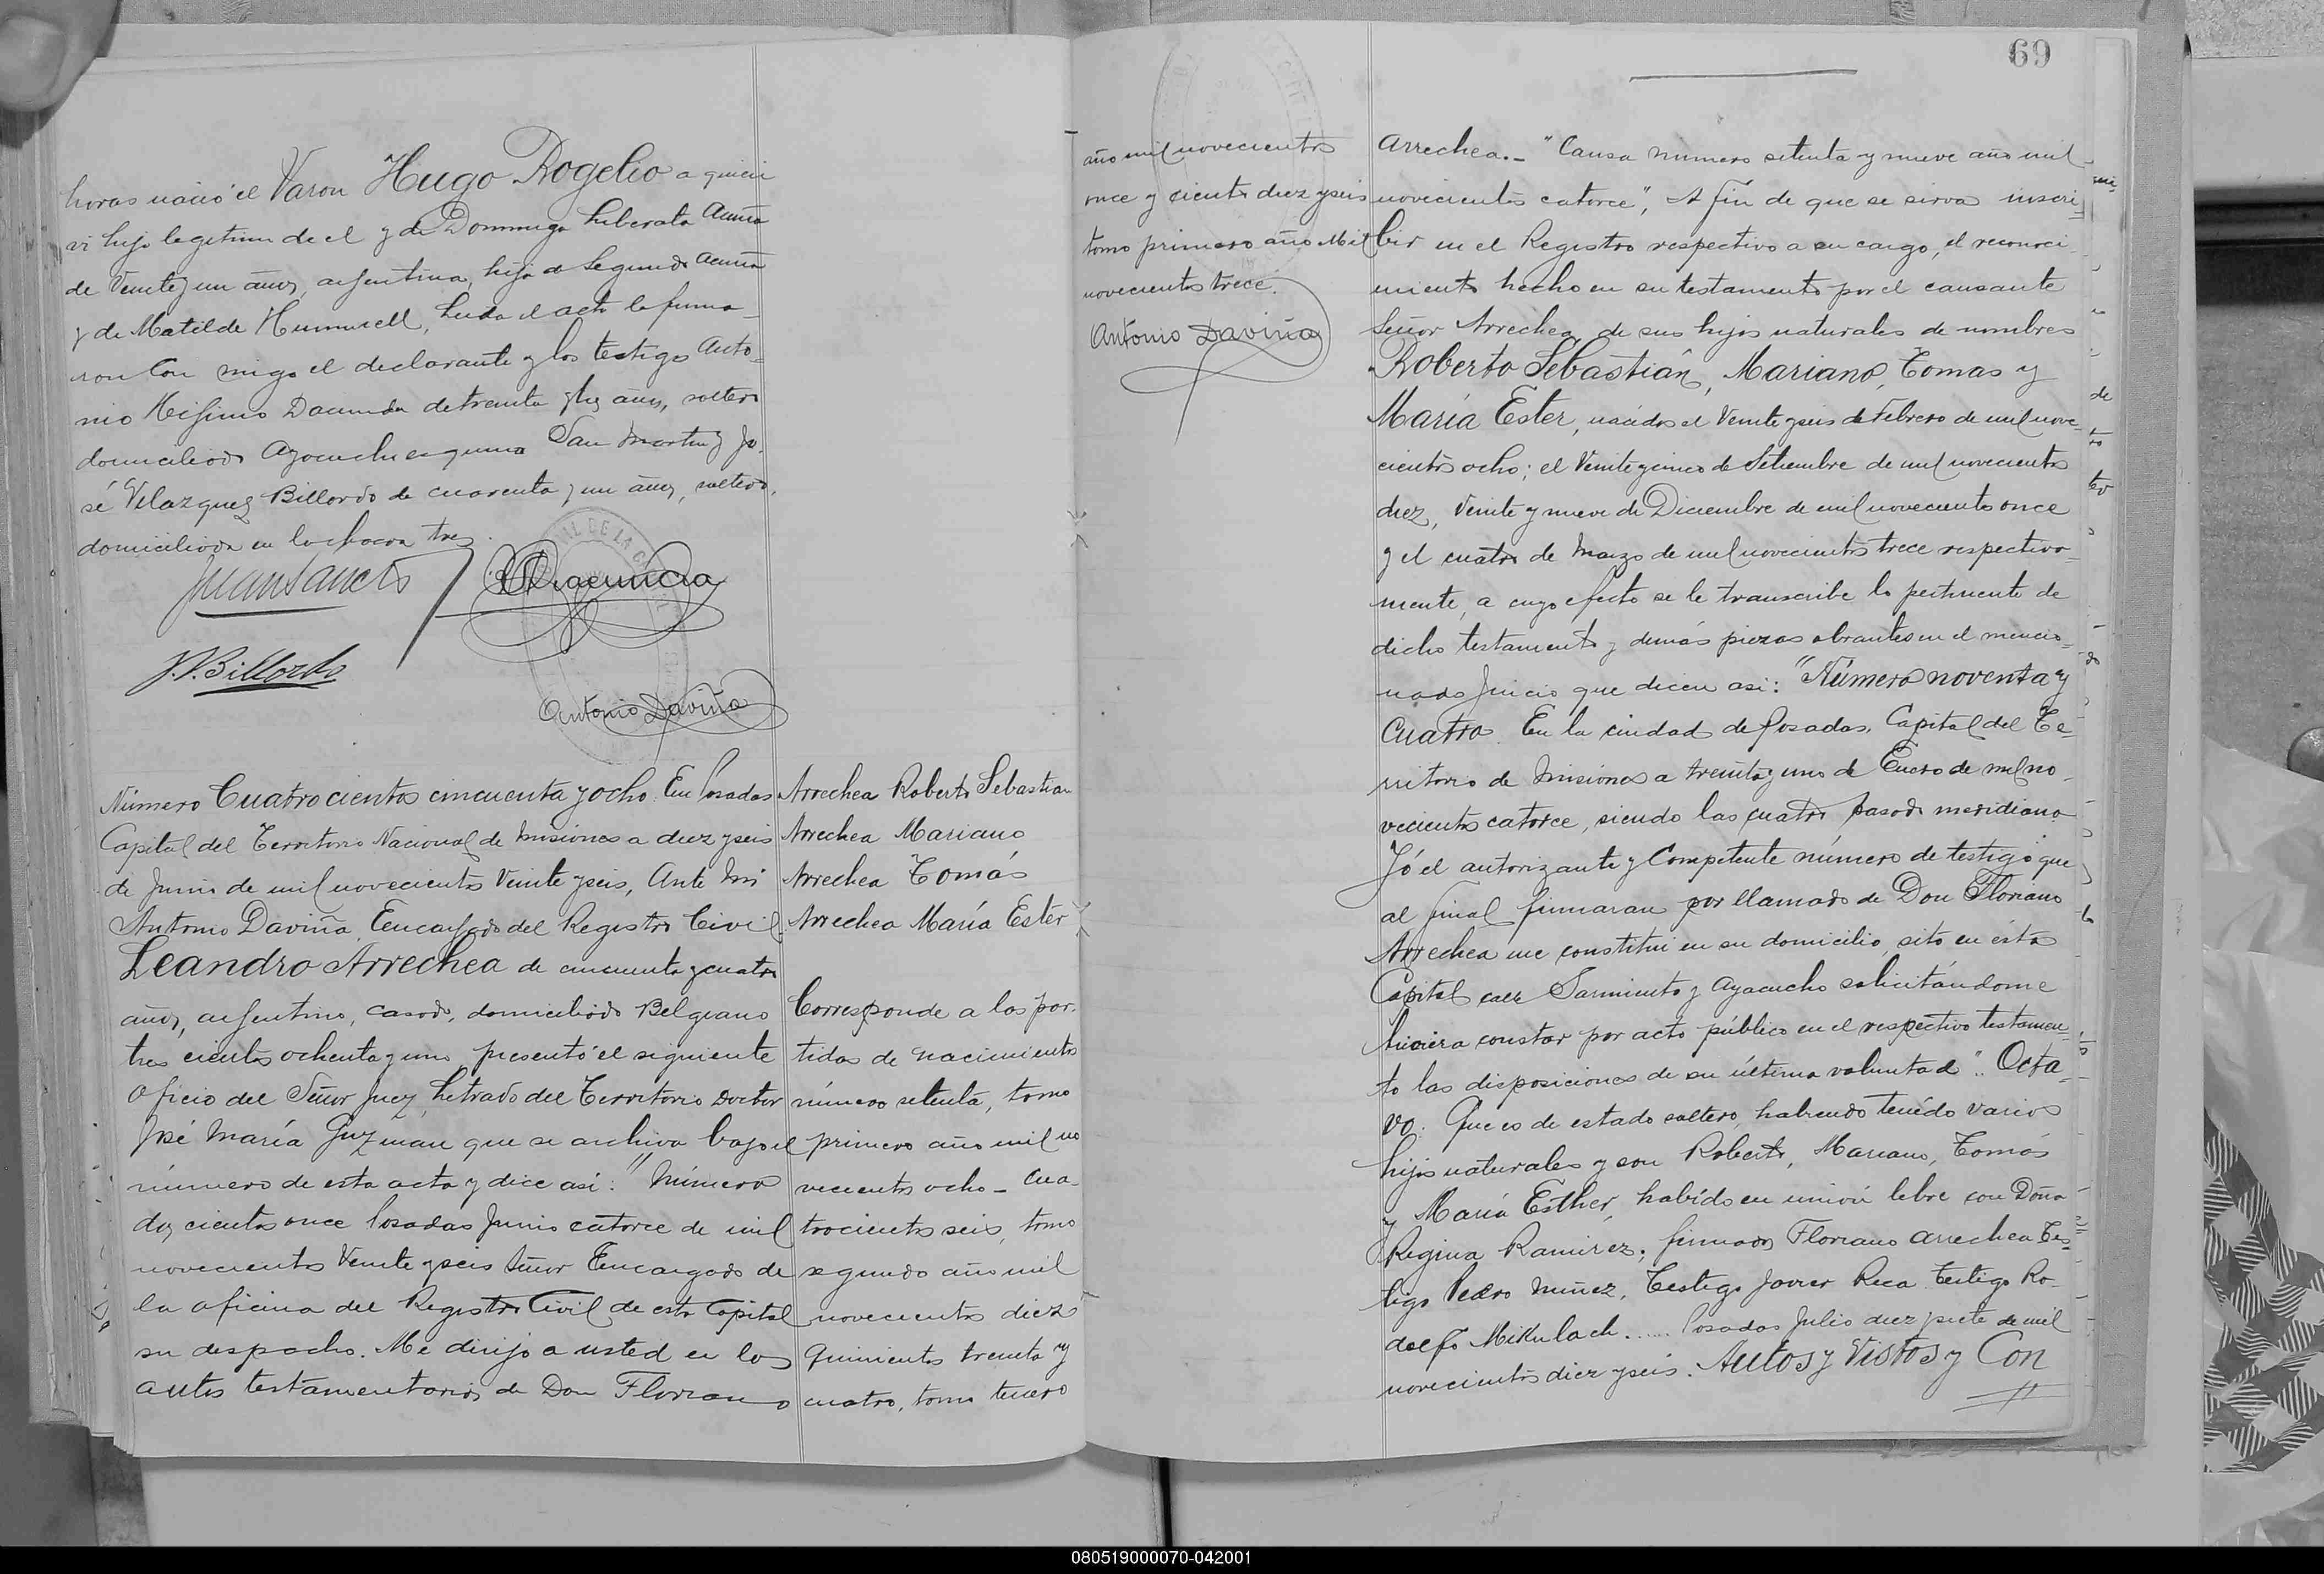 horas nació el Varon Hugo Rogelio a quien
vi hijo legitimo de el y de Dominga Liberata Acuña
de Veinte y un años, argentina, hija de Segundo Acuña
y de Matilde Hummell, Leida el acta la firma-
ron Con migo el declarante y los testigos Anto-
nio Dacunda de treinta y tres años, soltero
domiciliado Ayacucho esquina San Martin y Jo-
sé Velazquez Billordo de cuarenta y un años, soltero,
domiciliado en la chacra tres.
J.V. Billordo
Antonio Daviña
Número Cuatrocientos cincuenta y ocho. En Posadas
Capital del Territorio Nacional de Misiones a diez y seis
de Junio de mil novecientos Veinte y seis, Ante Mi
Antonio Daviña, Encargado del Registro Civil
Leandro Arrechea de cincuenta y cuatro
años, argentino, casado, domiciliado Belgrano
tres cientos ochenta y uno presentó el siguiente
oficio del Señor Juez Letrado del Territorio Doctor
José María Guzman que se archiva bajo el
número de esta acta y dice asi: "Número
dos cientos once Posadas Junio catorce de mil
novecientos Veinte y seis Señor Encargado de
la oficina del Registro Civil de esta Capital
su despacho. Me dirijo a usted en los
autos testamentarios de Don Floriano
Arrechea Roberto Sebastian
Arrechea Mariano
Arrechea Tomás
Arrechea María Ester
Corresponde a las par-
tidas de nacimientos
número setenta, tomo
primero año mil no
vecientos ocho - cua-
trocientos seis, tomo
segundo año mil
novecientos diez
Quinientos treinta y
cuatro, tomo tercero
69
año mil novecientos
once y ciento diez y seis
tomo primero año Mil
novecientos trece.
Antonio Daviña
Arrechea.- "Causa número setenta y nueve año mil
novecientos catorce", A fin de que se sirva inscri-
bir en el Registro respectivo a su cargo, el reconoci-
miento hecho en su testamento por el causante
Señor Arrechea de sus hijos naturales de nombres
Roberto Sebastián, Mariano, Tomas y
María Ester, nacidos el Veinte y seis de Febrero de mil nove-
cientos ocho; el Veinte y cinco de Setiembre de mil novecientos
diez, Veinte y nueve de Diciembre de mil novecientos once
y el cuatro de Marzo de mil novecientos trece respectiva-
mente, a cuyo efecto se le transcribe lo pertinente de
dicho testamento y demás piezas obrantes en el mencio-
nado Juicio que dicen asi: "Número noventa y
Cuatro. En la ciudad de Posadas, Capital del Te-
rritorio de Misiones a treinta y uno de Enero de mil no-
vecientos catorce, siendo las cuatro pasado meridiano
Yó el autorizante y Competente número de testigo que
al final firmaran por llamado de Don Floriano
Arrechea me constituí en su domicilio, sito en esta
Capital calle Sarmiento y Ayacucho solicitándome
hiciera constar por acto público en el respectivo testamen-
to las disposiciones de su última voluntad". Octa-
vo. Que es de estado soltero, habiendo tenido varios
hijos naturales y son Roberto, Mariano, Tomás
y María Esther, habido en unión libre con Doña
Regina Ramirez; firmados Floriano Arrechea Tes-
tigo Pedro Nuñez, Testigo Javier Reca Testigo Ro-
dolfo Mikulach...... Posadas Julio diez y siete de mil
novecientos diez y seis. Autos y Vistos y Con
080519000070-042001